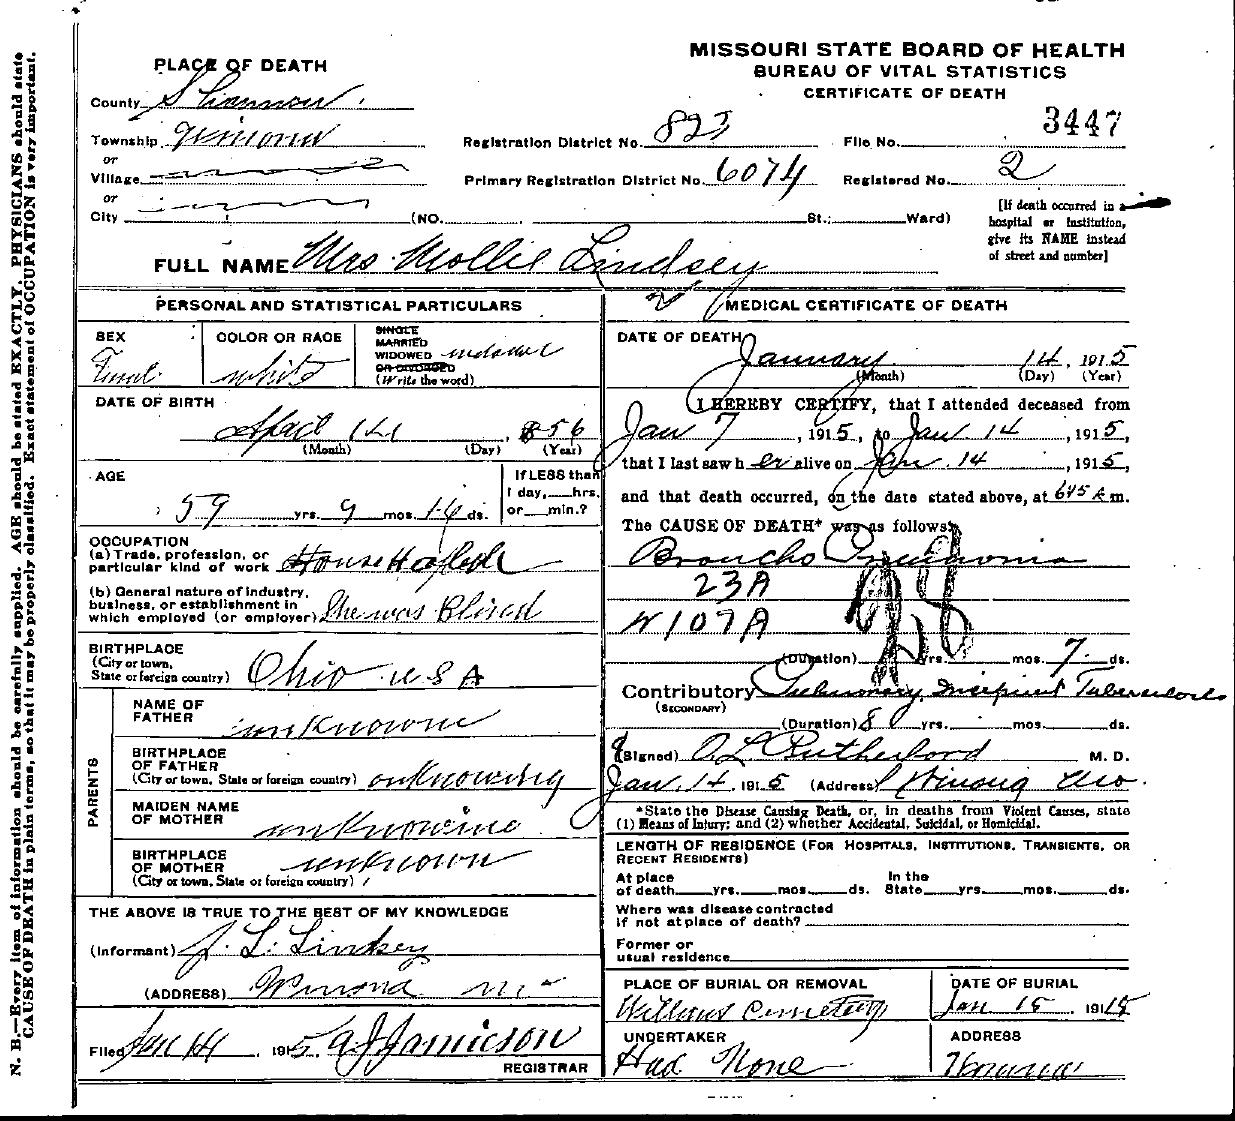 MISSOURI STATE BOARD OF HEALTH
BUREAU OF VITAL STATISTICS
CERTIFICATE OF DEATH
PLACE OF DEATH
County Shannon
Township Winona
or
Village
or
City (NO. St.; Ward)
Registration District No. 823
File No. 3447
Primary Registration District No. 6074
Registered No. 2
[If death occurred in a
hospital or institution,
give its NAME instead
of street and number]
FULL NAME Mrs Mollie Lindsey
PERSONAL AND STATISTICAL PARTICULARS
SEX
COLOR OR RACE
white
SINGLE
MARRIED
WIDOWED
OR DIVORCED
(Write the word)
DATE OF BIRTH
(Month) (Day) (Year)
856
AGE
59 yrs. 9 mos. ds.
If LESS than
1 day, hrs.
or min.?
OCCUPATION
(a) Trade, profession, or
particular kind of work
(b) General nature of industry,
business, or establishment in
which employed (or employer) She was Blind
BIRTHPLACE
(City or town,
State or foreign country) Ohio U S A
PARENTS
NAME OF
FATHER unknowne
BIRTHPLACE
OF FATHER
(City or town, State or foreign country) onknowing
MAIDEN NAME
OF MOTHER
BIRTHPLACE
OF MOTHER unknown
(City or town, State or foreign country)
THE ABOVE IS TRUE TO THE BEST OF MY KNOWLEDGE
(Informant) J. L. Lindsey
(ADDRESS) Winona Mo
Filed Jan 14, 1915. A J Jamieson
REGISTRAR
MEDICAL CERTIFICATE OF DEATH
DATE OF DEATH
January 14, 1915
(Month) (Day) (Year)
I HEREBY CERTIFY, that I attended deceased from
Jan 7, 1915, to Jan. 14, 1915,
that I last saw h er alive on Jan. 14, 1915,
and that death occurred, on the date stated above, at 645 A m.
The CAUSE OF DEATH* was as follows:
Broncho Pneumonia
23A
107A
98
(Duration) yrs. mos. 7 ds.
Contributory Pulmonary Incipient Tuberculosis
(SECONDARY)
(Duration) 8 yrs. mos. ds.
(Signed) O L Rutherford M. D.
Jan. 14 1915 (Address) Winona Mo.
*State the Disease Causing Death, or, in deaths from Violent Causes, state
(1) Means of Injury; and (2) whether Accidental, Suicidal, or Homicidal.
LENGTH OF RESIDENCE (FOR HOSPITALS, INSTITUTIONS, TRANSIENTS, OR
RECENT RESIDENTS)
At place In the
of death yrs. mos. ds. State yrs. mos. ds.
Where was disease contracted
if not at place of death?
Former or
usual residence
PLACE OF BURIAL OR REMOVAL
Williams Cemetery
DATE OF BURIAL
Jan 15 1915
UNDERTAKER
Had None
ADDRESS
Winona
N. B.—Every item of information should be carefully supplied. AGE should be stated EXACTLY. PHYSICIANS should state
CAUSE OF DEATH in plain terms, so that it may be properly classified. Exact statement of OCCUPATION is very important.